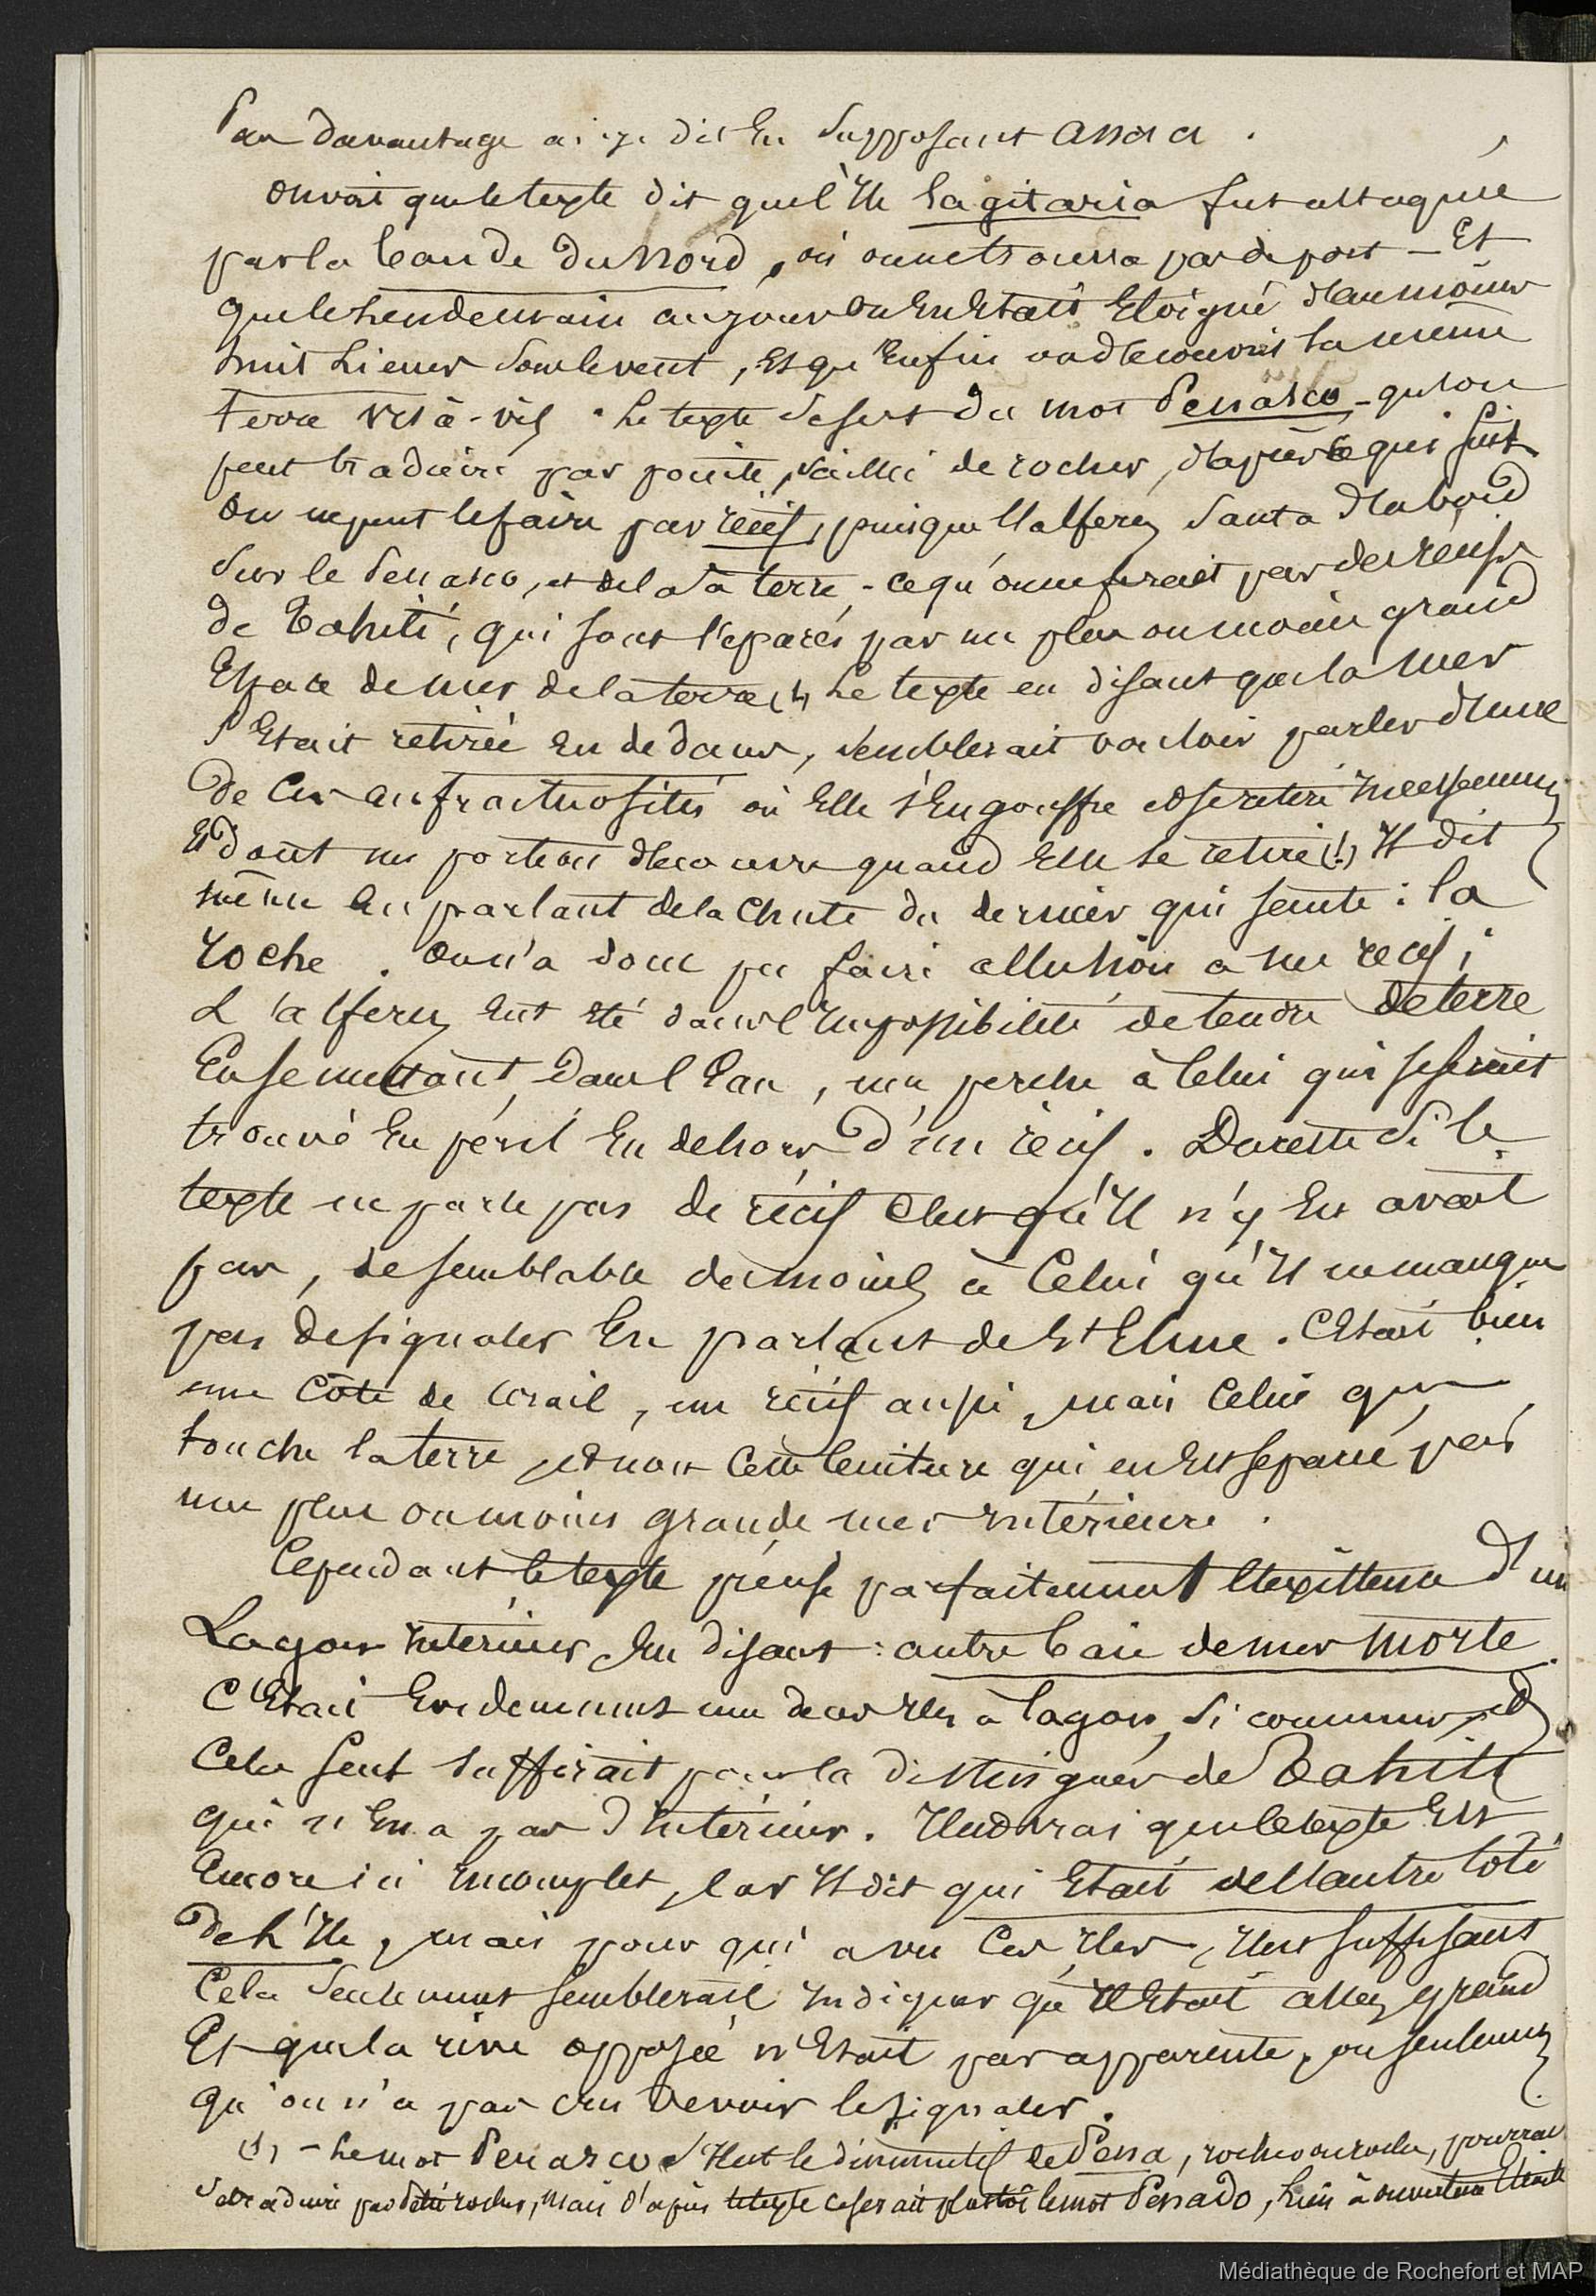 Pas davantage ai-je dit en supposant Anaa.
on voit que le texte dit que l'Ile Sagitaria fut attaquée
par la bande du nord, où on ne trouva pas de port — Et
que le lendemain au jour on en était éloigné d'au moins
huit Lieues sous le vent, Et qu'enfin on découvrit la même
terre vis-à-vis. Le texte se sert du mot Penasco - qu'on
peut traduire par pointe, saillie de rocher, d'après ce qui suit
on ne peut le faire par récif, puisque l'alferez sauta d'abord
sur le Penasco, et de là à terre, - ce qu'on ne ferait pas des récifs
de Tahiti, qui sont séparés par un plus ou moins grand
Espace de mer de la terre (1) Le texte en disant que la mer
s'Etait retirée en dedans, semblerait vouloir parler d'une
de ces anfractuosités où Elle s'Engouffre et se retire incessamment
Et dont une portion découvre quand Elle se retire (1) Il dit
même En parlant de la chute du dernier qui saute : la
roche. On n'a donc pu faire allusion à un récif ;
L'alferez eut été dans l'Impossibilité de tendre de terre
En se mettant dans l'Eau, une perche à celui qui se serait
trouvé En péril En dehors d'un récif. Du reste si le
texte ne parle pas de récif c'est qu'Il n'y En avait
pas, de semblable du moins à Celui qu'Il ne manque
pas de signaler En parlant de St Elme. C'Etait bien
une Côte de Corail, un récif aussi, mais Celui qui
touche la terre, et non cette Ceinture qui en Est séparée par
une plus ou moins grande mer Intérieure.
Cependant le texte précise parfaitement l'existence d'un
Lagon Intérieur En disant : autre baie de mer morte.
C'Etait Evidemment une de ces Iles à lagon, si communes, et
Cela seul suffirait pour la distinguer de Tahiti
qui n'En a pas d'Intérieur. Il est vrai que le texte Est
Encore ici Incomplet, Car Il dit qui Etait de l'autre Côté
de L'Ile, mais pour qui a vu Ces Iles, Il est suffisant
Cela Seulement semblerait Indiquer qu'Il Etait assez grand
Et que la rive opposée n'Etait pas apparente, ou seulement
qu'on n'a pas cru devoir le signaler.
(1) - Le mot Penasco s'Il est le diminutif de Pena, rocher ou roche, pourrait
se traduire par petit rocher, mais d'après le texte ce serait plustôt le mot Penado, Lieu à ouverture Etroite